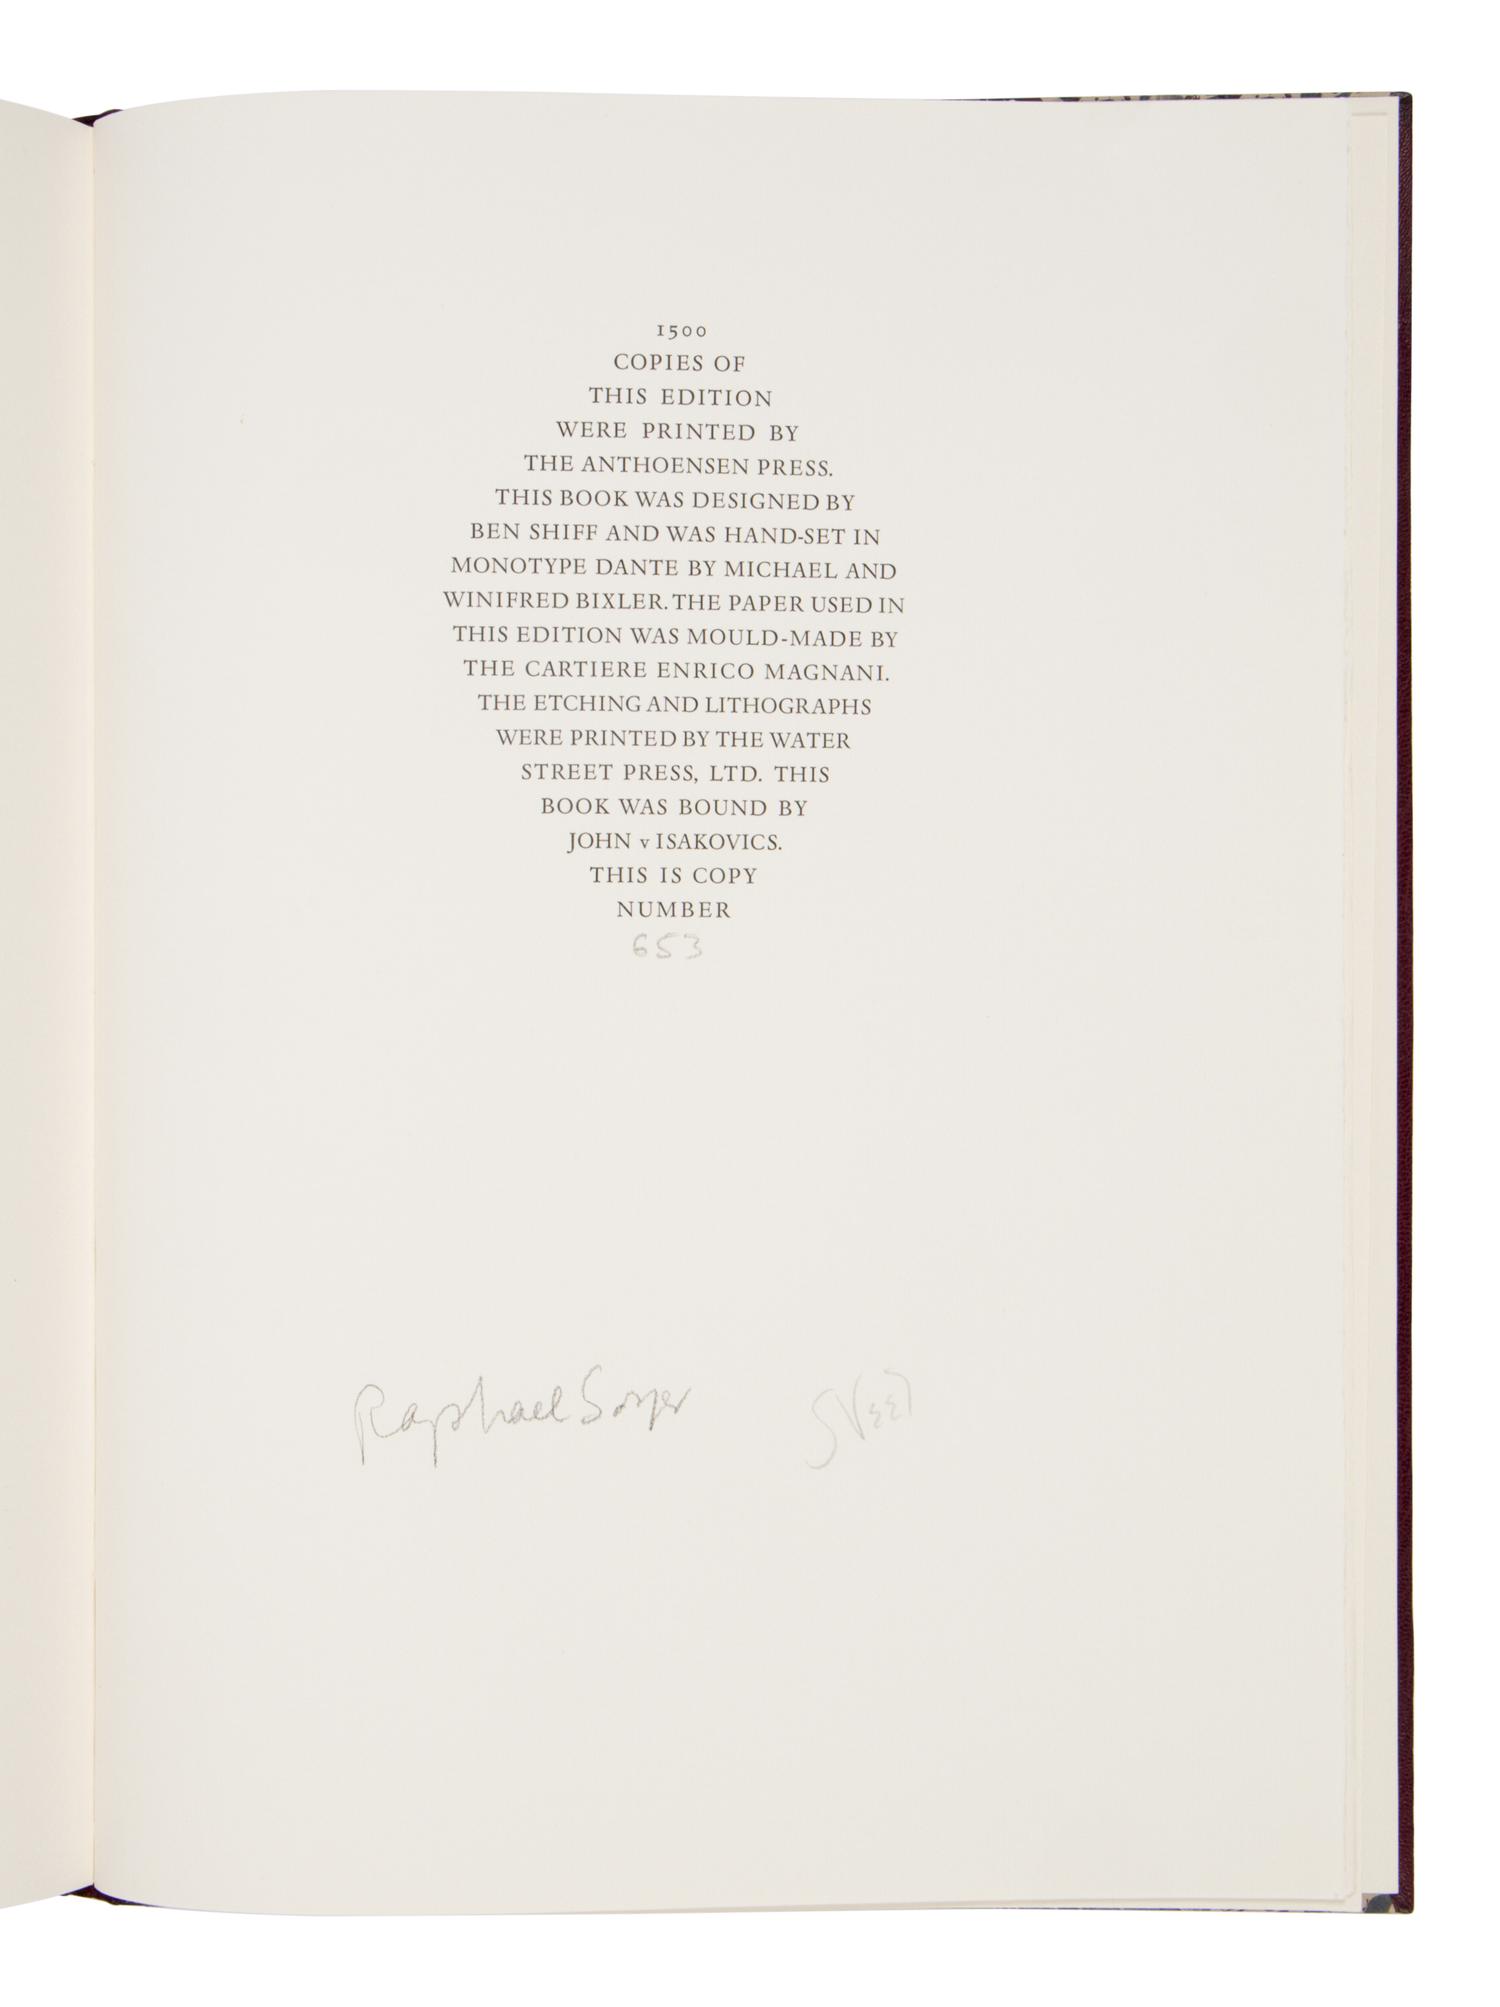 1500
COPIES OF
THIS EDITION
WERE PRINTED BY
THE ANTHOENSEN PRESS.
THIS BOOK WAS DESIGNED BY
BEN SHIFF AND WAS HAND-SET IN
MONOTYPE DANTE BY MICHAEL AND
WINIFRED BIXLER. THE PAPER USED IN
THIS EDITION WAS MOULD-MADE BY
THE CARTIERE ENRICO MAGNANI.
THE ETCHING AND LITHOGRAPHS
WERE PRINTED BY THE WATER
STREET PRESS, LTD. THIS
BOOK WAS BOUND BY
JOHN v ISAKOVICS.
THIS IS COPY
NUMBER
653
Raphael Soyer